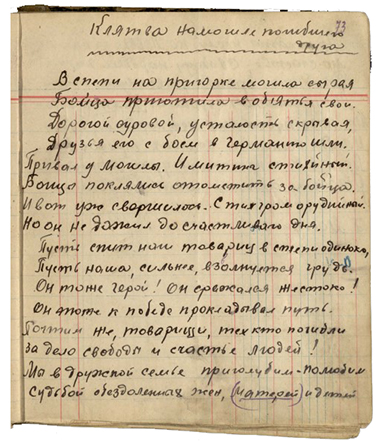 73
Клятва на могиле погибшего
друга
В степи на пригорке могила сырая
Бойца приютила в объятья свои.
Дорогой суровой, усталость скрывая,
Друзья его с боем в германию шли.
Привал у могилы. И митинг стихийный.
Бойцы поклялись отомстить за бойца.
И вот уж свершилось. Стих гром орудийный.
Но он не дожил до счастливого дня.
Пусть спит наш товарищ в степи одиноко,
Пусть наша, сильнее, взволнуется грудь.
Он тоже герой! Он сражался жестоко!
Он тоже к победе прокладывал путь.
Почтим же, товарищи, тех кто погибли
за дело свободы и счастье людей!
Мы в дружной семье приголубим-полюбим
Судьбой обездоленных жен, матерей и детей